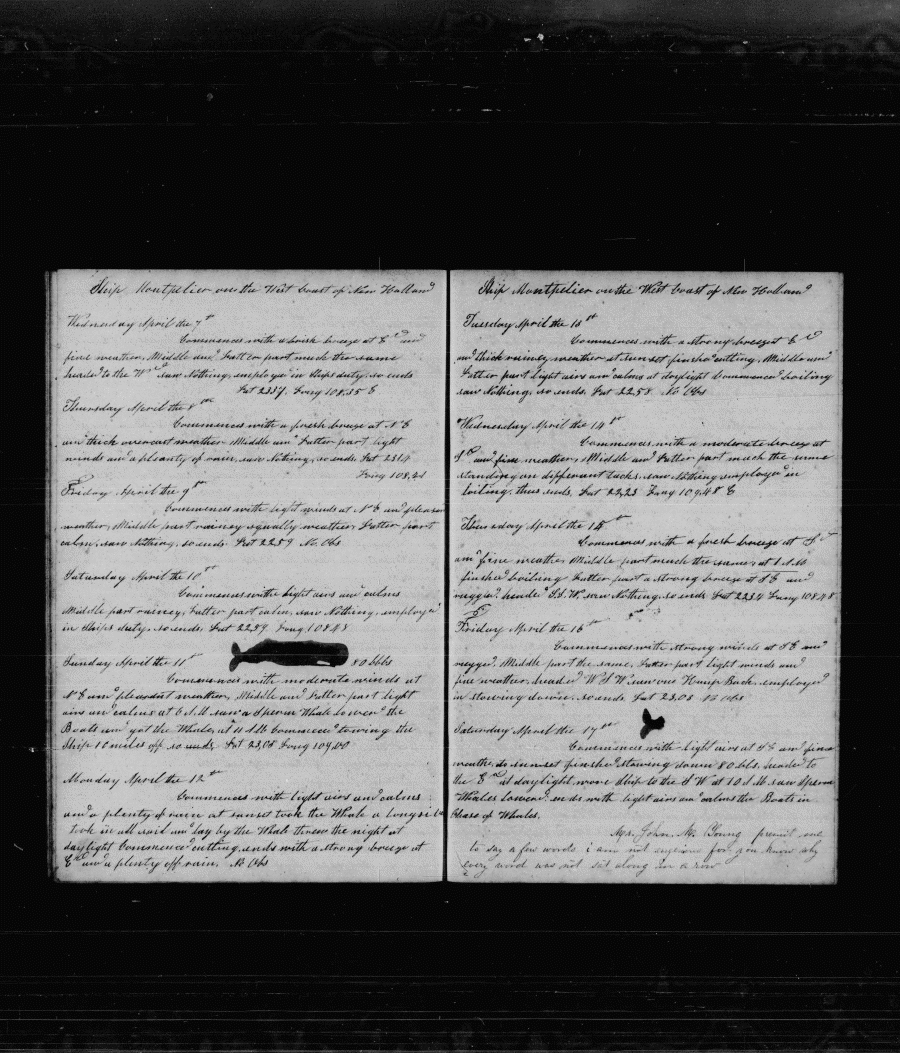 Ship Montpelier on the West Coast of New Holland
Wednesday April the 7th
Commences with a brisk breeze at Ed and
fine weather, Middle and Latter part much the same
headed to the Wd saw Nothing, employed in Ships duty, so ends
Lat 2337, Long 108.35 E
Thursday April the 8th
Commences with a fresh breeze at N E
and thick overcast weather Middle and Latter part light
winds and a pleanty of rain, saw Nothing, so ends Lat 2314
Long 108,41
Friday April the 9th
Commences with light winds at N E and pleasan
weather, Middle part rainey squally weather, Latter part
calm, saw Nothing, so ends Lat 2259 No Obs
Saturday April the 10th
Commences with light airs and calms
Middle part rainey, Latter part calm, saw Nothing, employed
in Ships duty, so ends, Lat 2239 Long 108 48
Sunday April the 11th 80 bbls
Commences with moderate winds at
N E and pleasant weather, Middle and Latter part light
airs and calms at 6 A.M saw a Sperm Whale lowered the
Boats and got the Whale, at 11 A.M Commenced towing the
Ship 10 miles off so ends Lat 23,08 Long 109,40
Monday April the 12th
Commences with light airs and calms
and a plenty of rain at sunset took the Whale a longsid
took in all sail and lay by the Whale threw the night at
daylight Commenced cutting, ends with a strong breeze at
Ed and a plenty off rain, No Obs
Ship Montpelier on the West Coast of New Holland
Tuesday April the 13th
Commences with a strong breeze at Ed
and thick rainey weather at sun set finshed cutting, Middle and
Latter part light airs and calms at daylight Commenced boiling
saw Nothing, so ends, Lat 2258 No Obs
Wednesday April the 14th
Commences with a moderate breeze at
Sd and fine weather, Middle and Latter part much the same
standing on differant tacks saw Nothing employed in
boiling, thus ends, Lat 22,23 Long 109.48 E
Thursday April the 15th
Commences with a fresh breeze at Sd
and fine weather Middle part much the same, at 1 A.M
finshed boilring Latter part a strong breeze at S E and
rugged headed S.S.W, saw Nothing so ends Lat 2234 Long 108 48
Friday April the 16th
Commences with strong winds at S E and
rugged, Middle part the same, Latter part light winds and
fine weather, headed W S W saw one Hump Back, employed
in stowing downe, so ends Lat 23,08 No Obs
Saturday April the 17th
Commences with light airs at S E and fine
weather, so sun set finshed stowing down 80 bbls, headed to
the Ed at daylight wore Ship to the S W at 10 A.M saw Sperm
Whales lowered ends with light airs and calms the Boats in
Chase of Whales.
Mr. John. M. Young premit me
to say a few words i am not for you know why
every word was not set along in a row